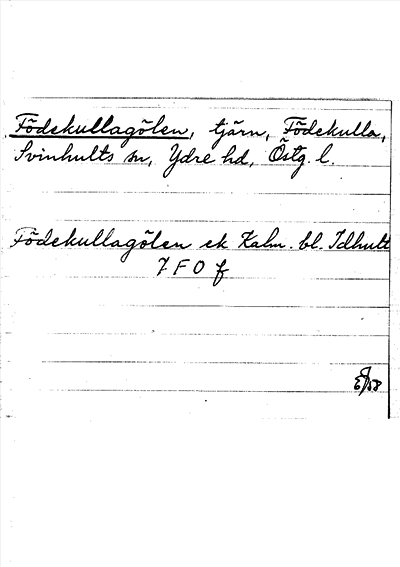 Födekullagölen, tjärn, Födekulla,
Svinhults sn, Ydre hd, Östg. l.
Födekullagölen ek Kalm. bl. Idhult
7 F 0 f